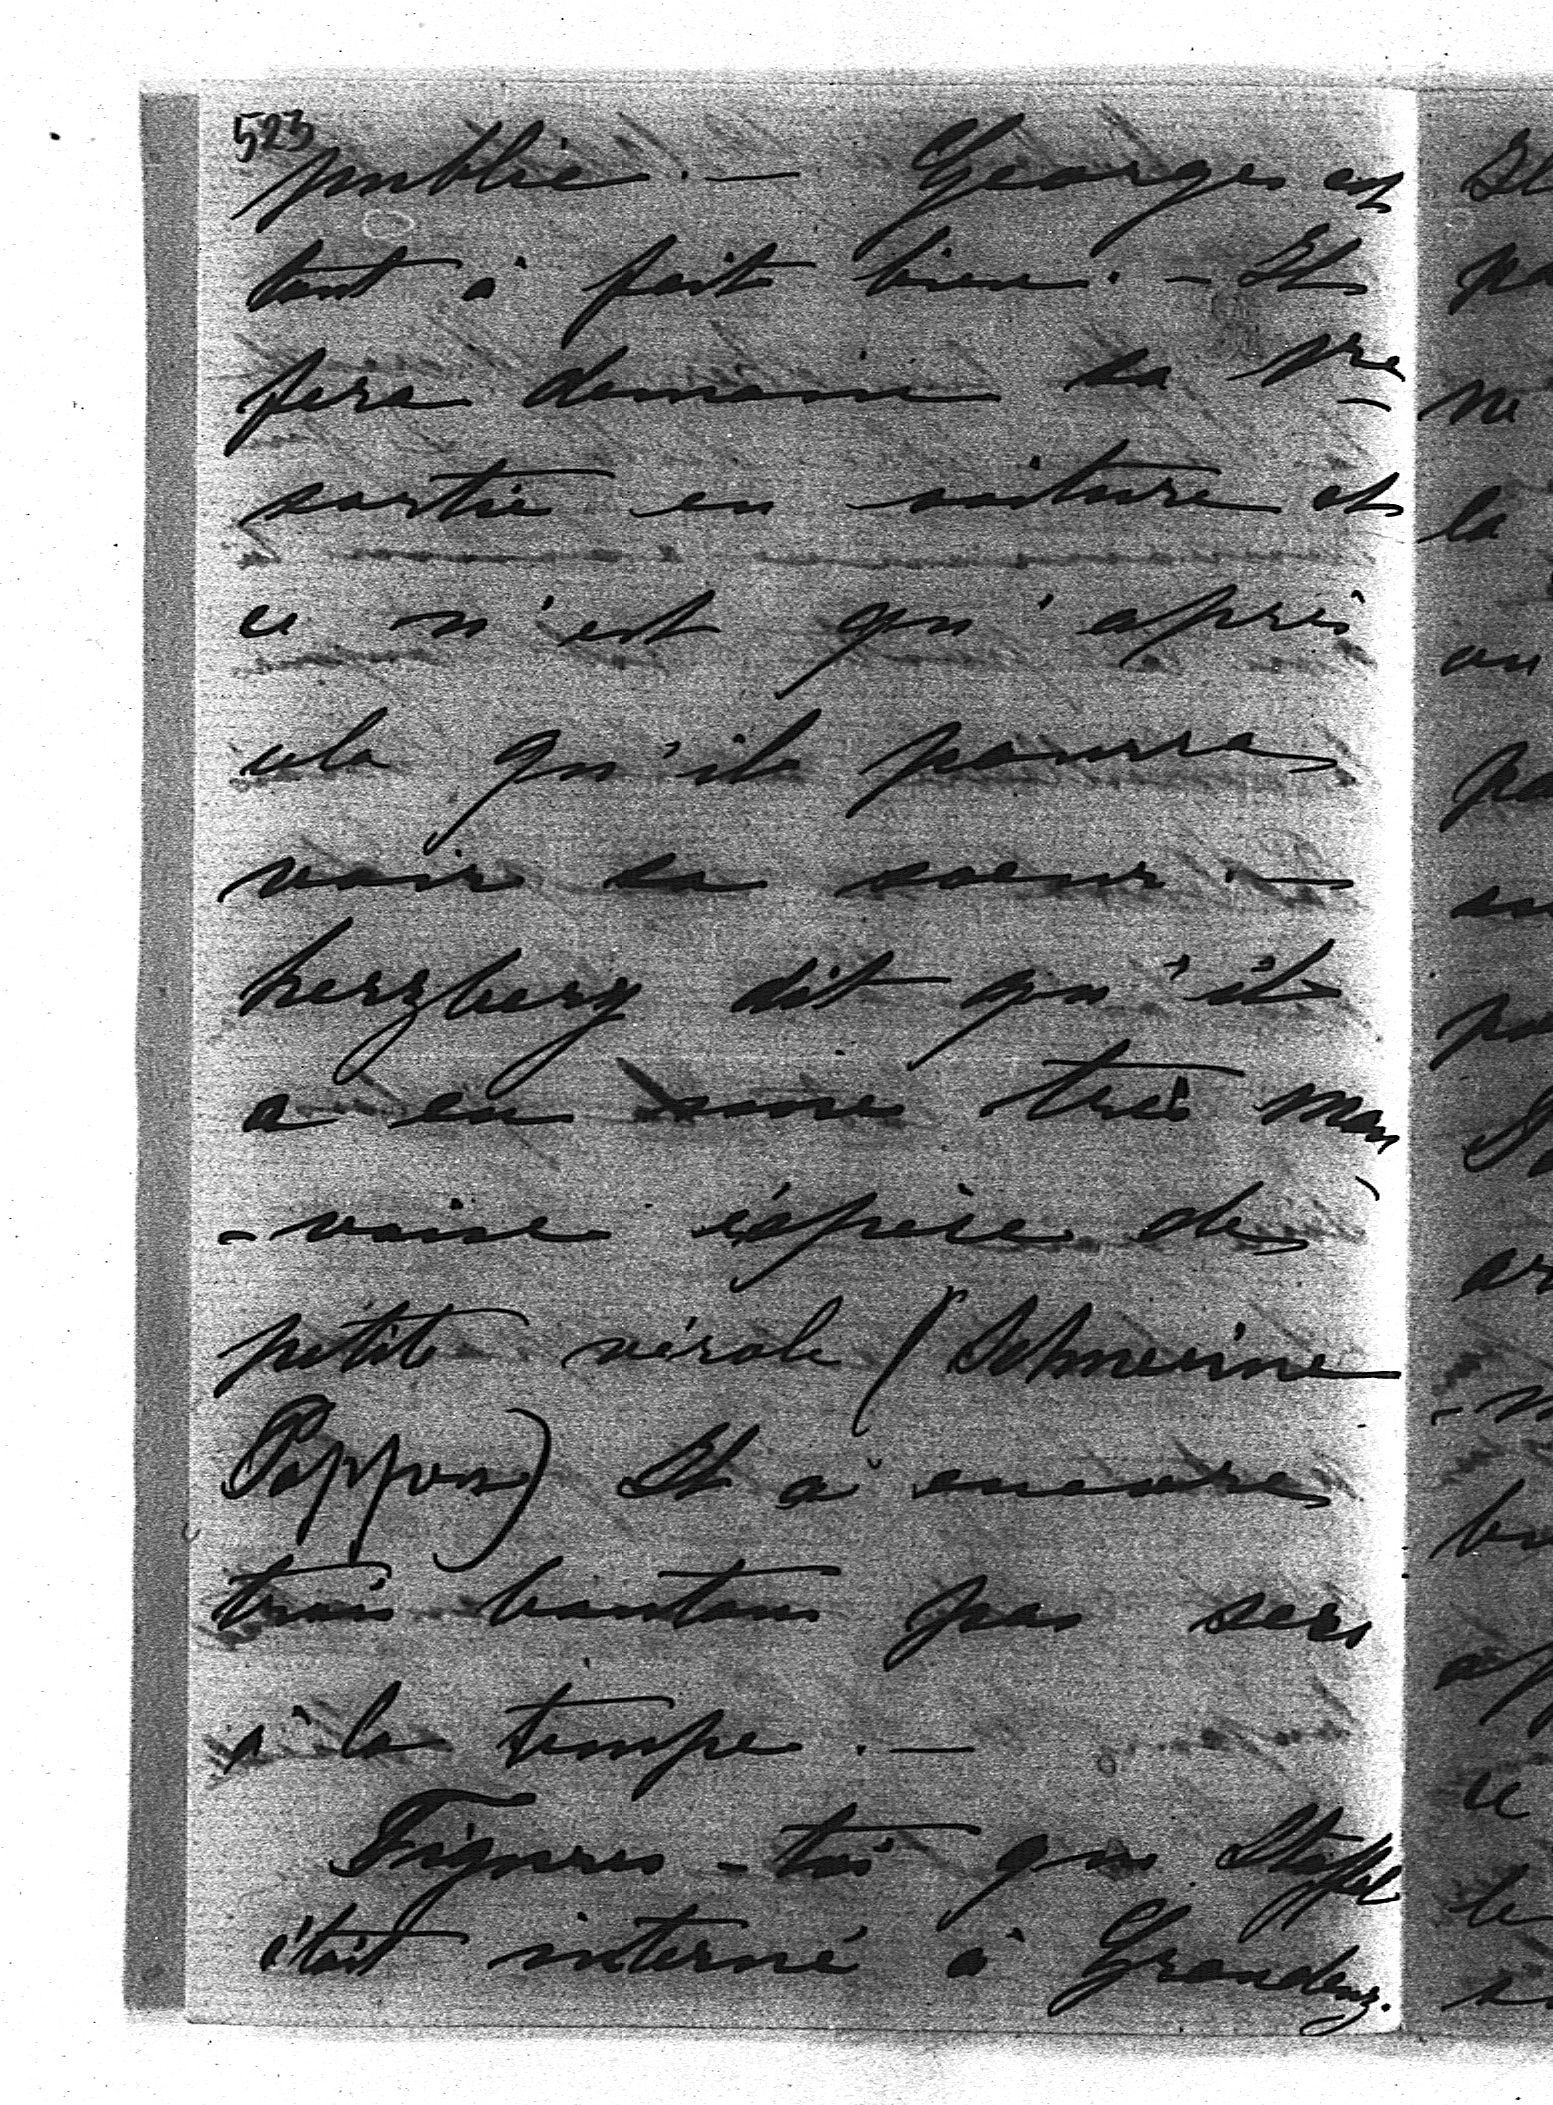 523
publié. — Georges est
tout à fait bien. — Il
fera demain sa pre
sortie en voiture et
ce n'est qu'après
cela qu'il pourra
voir sa soeur. —
herzberg dit qu'il
a eu une très mau
-vaise éspèce de
petite vérole (Schweine
Poppen) Il a encore
trois boutons pas secs
à la tempe. —
Figures-toi que Staffel
était interné à Graudenz.